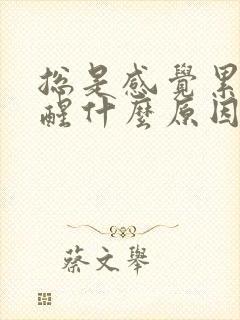 總是感覺累
醒什麼原因
蔡文舉